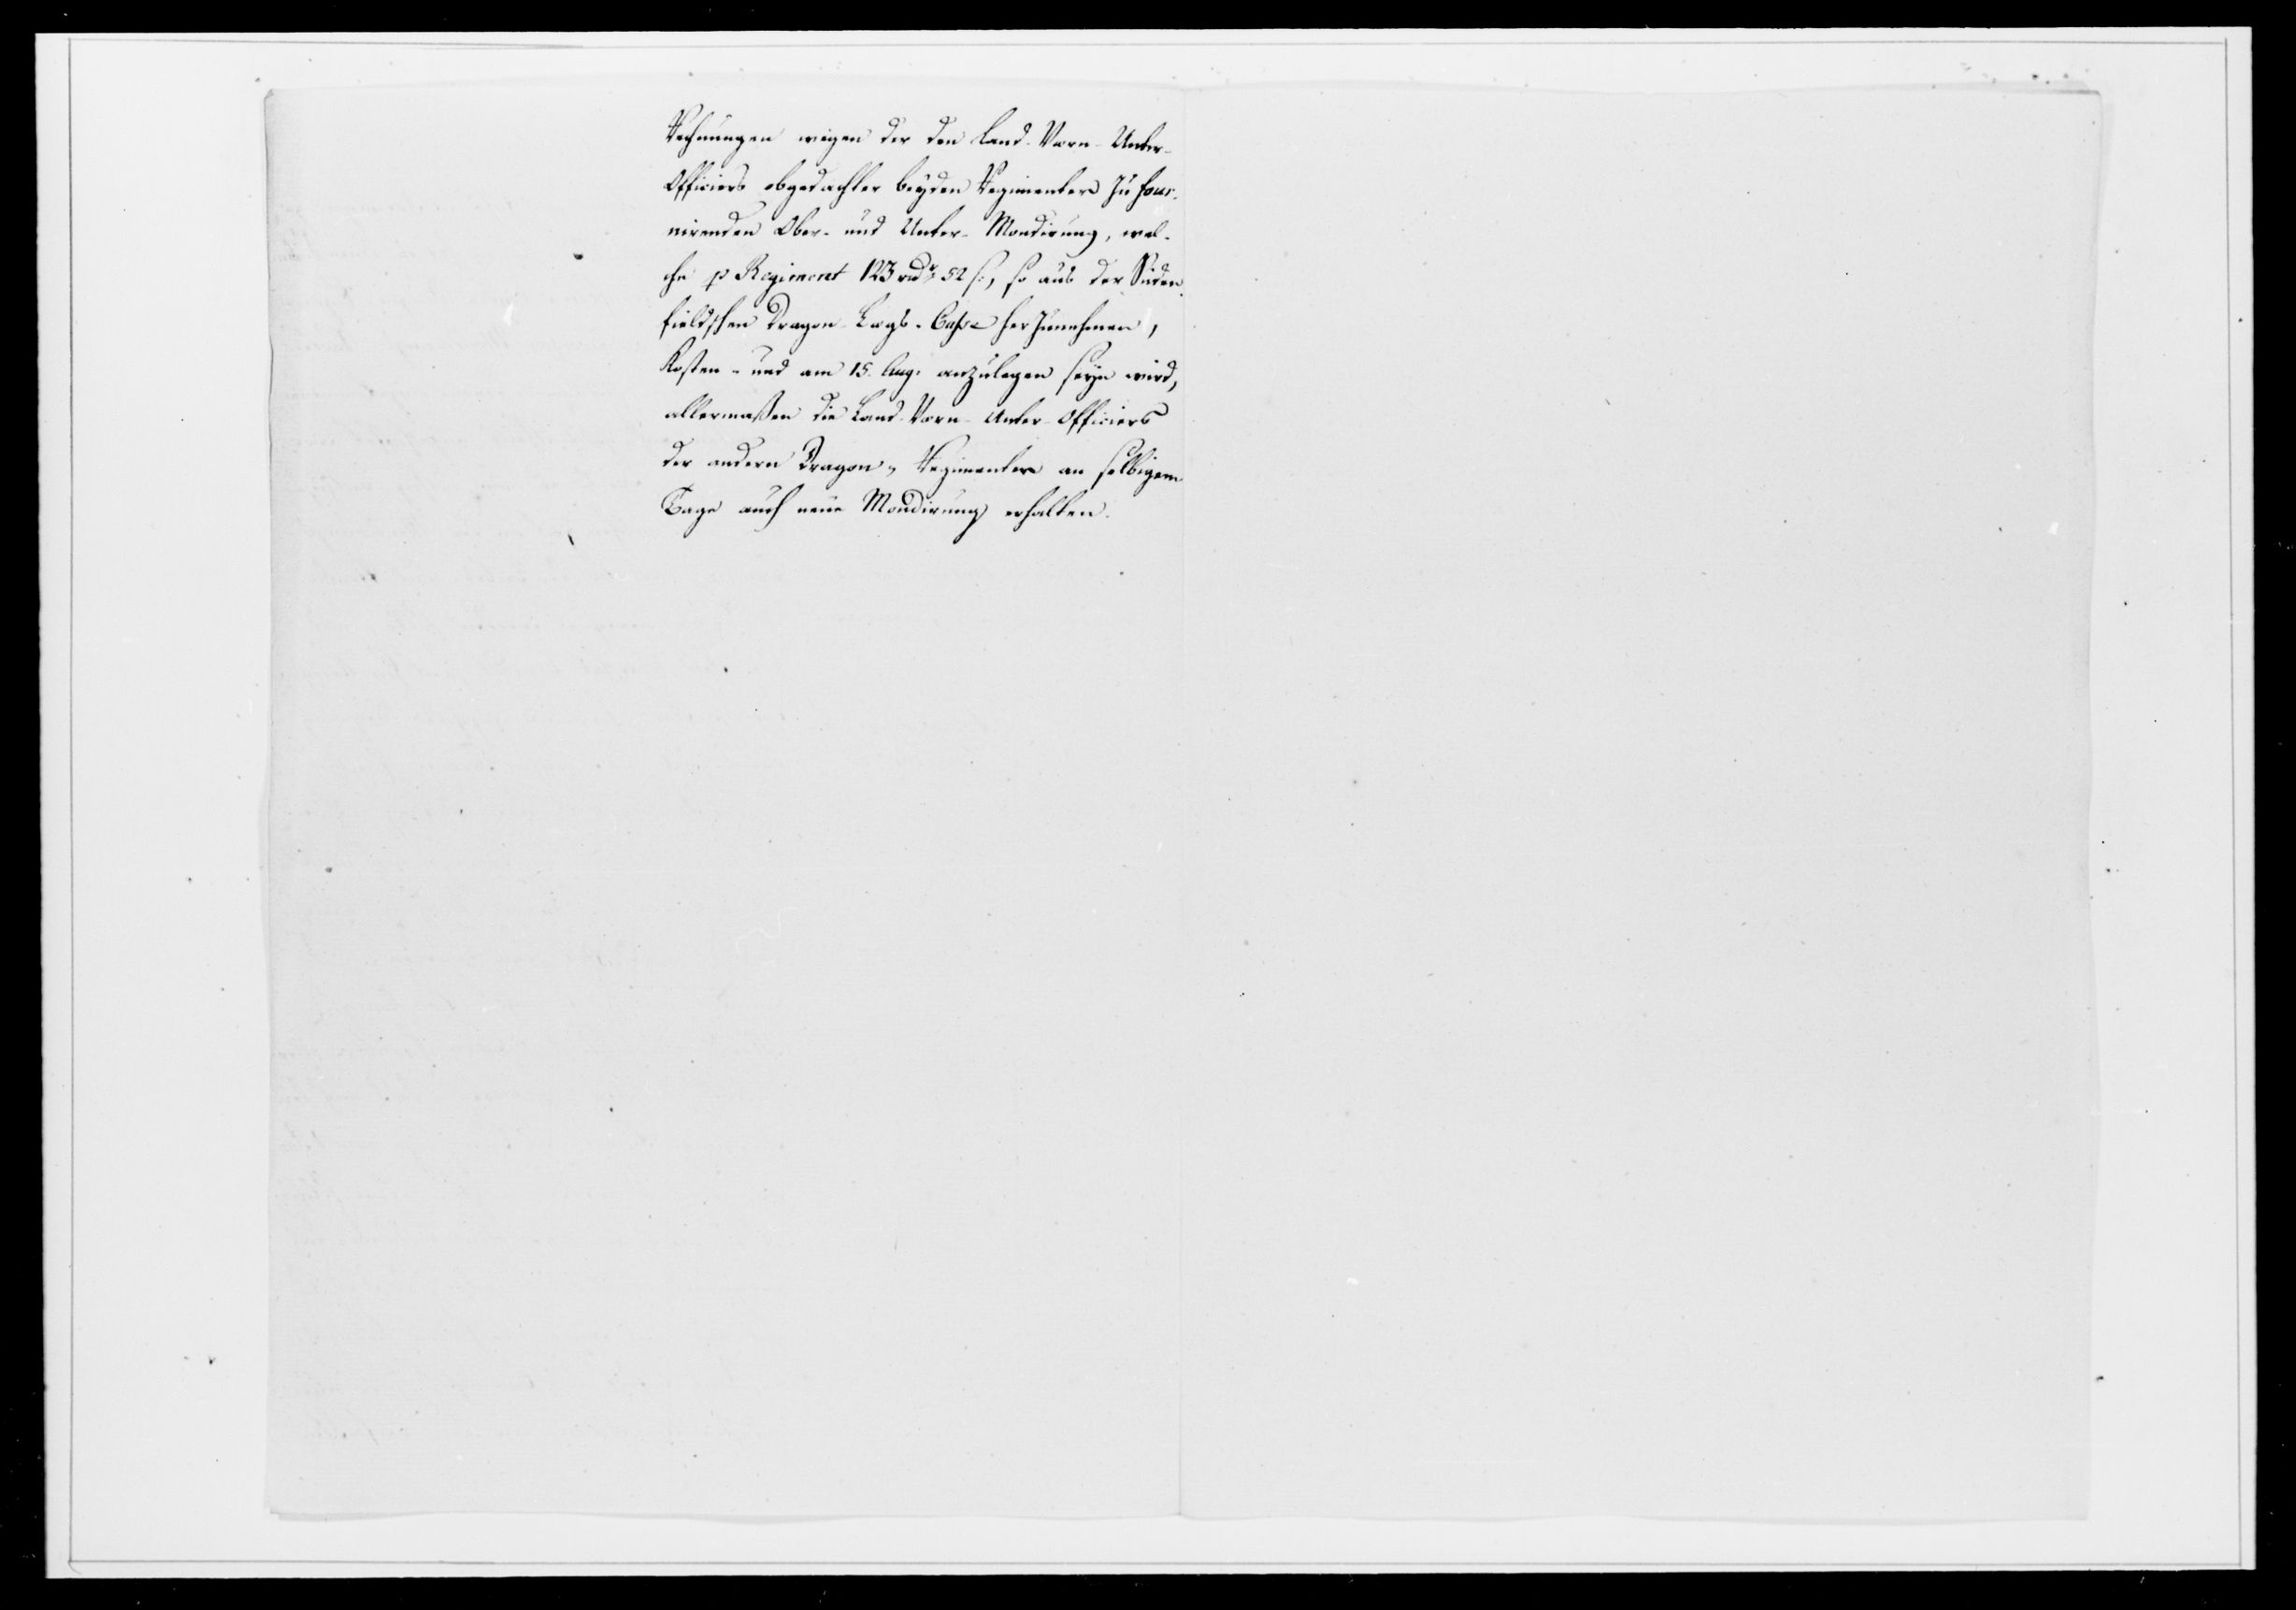 Rechnungen wegen der den Land-Værn-Unter-
Officiers obgedachter beyden Regimenter zu four-
nirenden Ober- und Unter-Mondirung, wel-
che p Regiment 123 rdr 52 s:, so aus der Süden-
fieldschen Dragon-Lægs-Casse herzunehmen,
Kosten- und am 15. Aug. anzulegen seyn wird,
allermaßen die Land-Værn-Unter-Officiers
der andern Dragon-Regimenter an selbigem
Tage auch neue Mondirung erhalten.